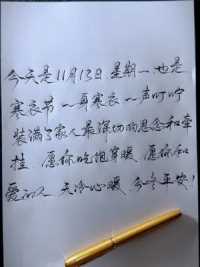 今天是11月13日 星期一 也是
寒衣节 一 寒衣 一声叮咛
装满了家人最深切的思念和牵
挂 愿你吃饱穿暖 愿你和
爱的人 天冷心暖 今冬平安!